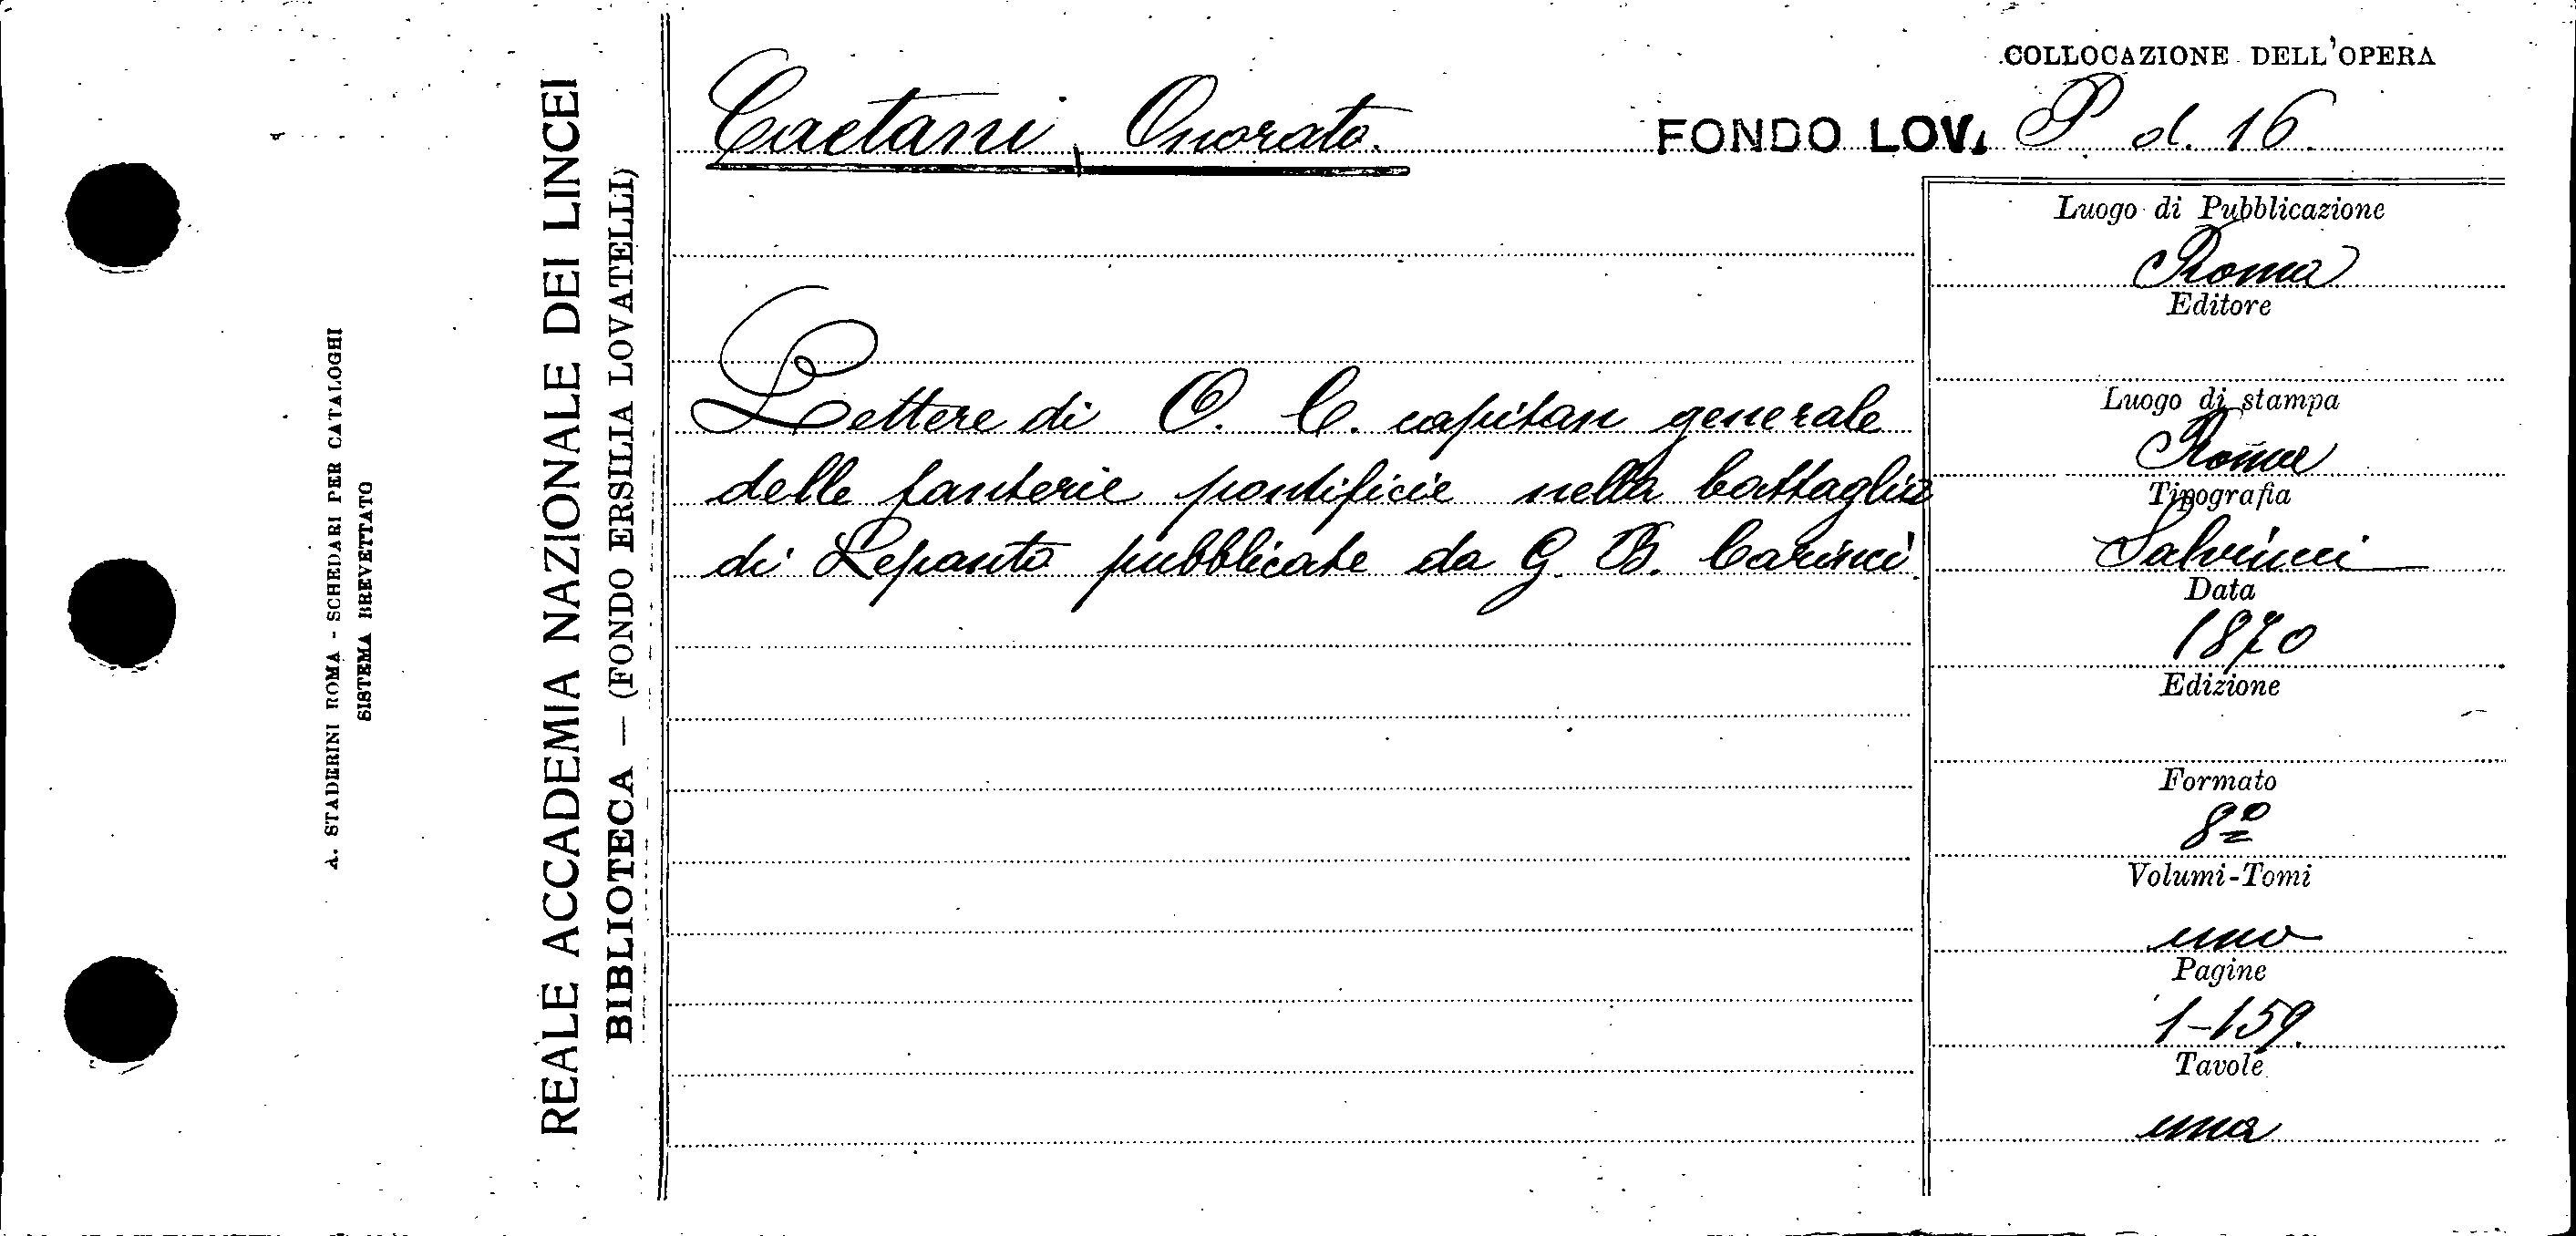 COLLOCAZIONE DELL'OPERA
Caetani, Onorato.
FONDO LOV. P. d. 16.
Lettere di O. C. capitan generale
delle fanterie pontificie nella battaglia
di Lepanto pubblicate da G. B. Carinci.
Luogo di Pubblicazione
Roma
Editore
Luogo di stampa
Roma
Tipografia
Salviucci
Data
1870
Edizione
Formato
8º
Volumi-Tomi
uno
Pagine
1-159.
Tavole
una
REALE ACCADEMIA NAZIONALE DEI LINCEI
BIBLIOTECA — (FONDO ERSILIA LOVATELLI)
A. STADERINI ROMA - SCHEDARI PER CATALOGHI
SISTEMA BREVETTATO